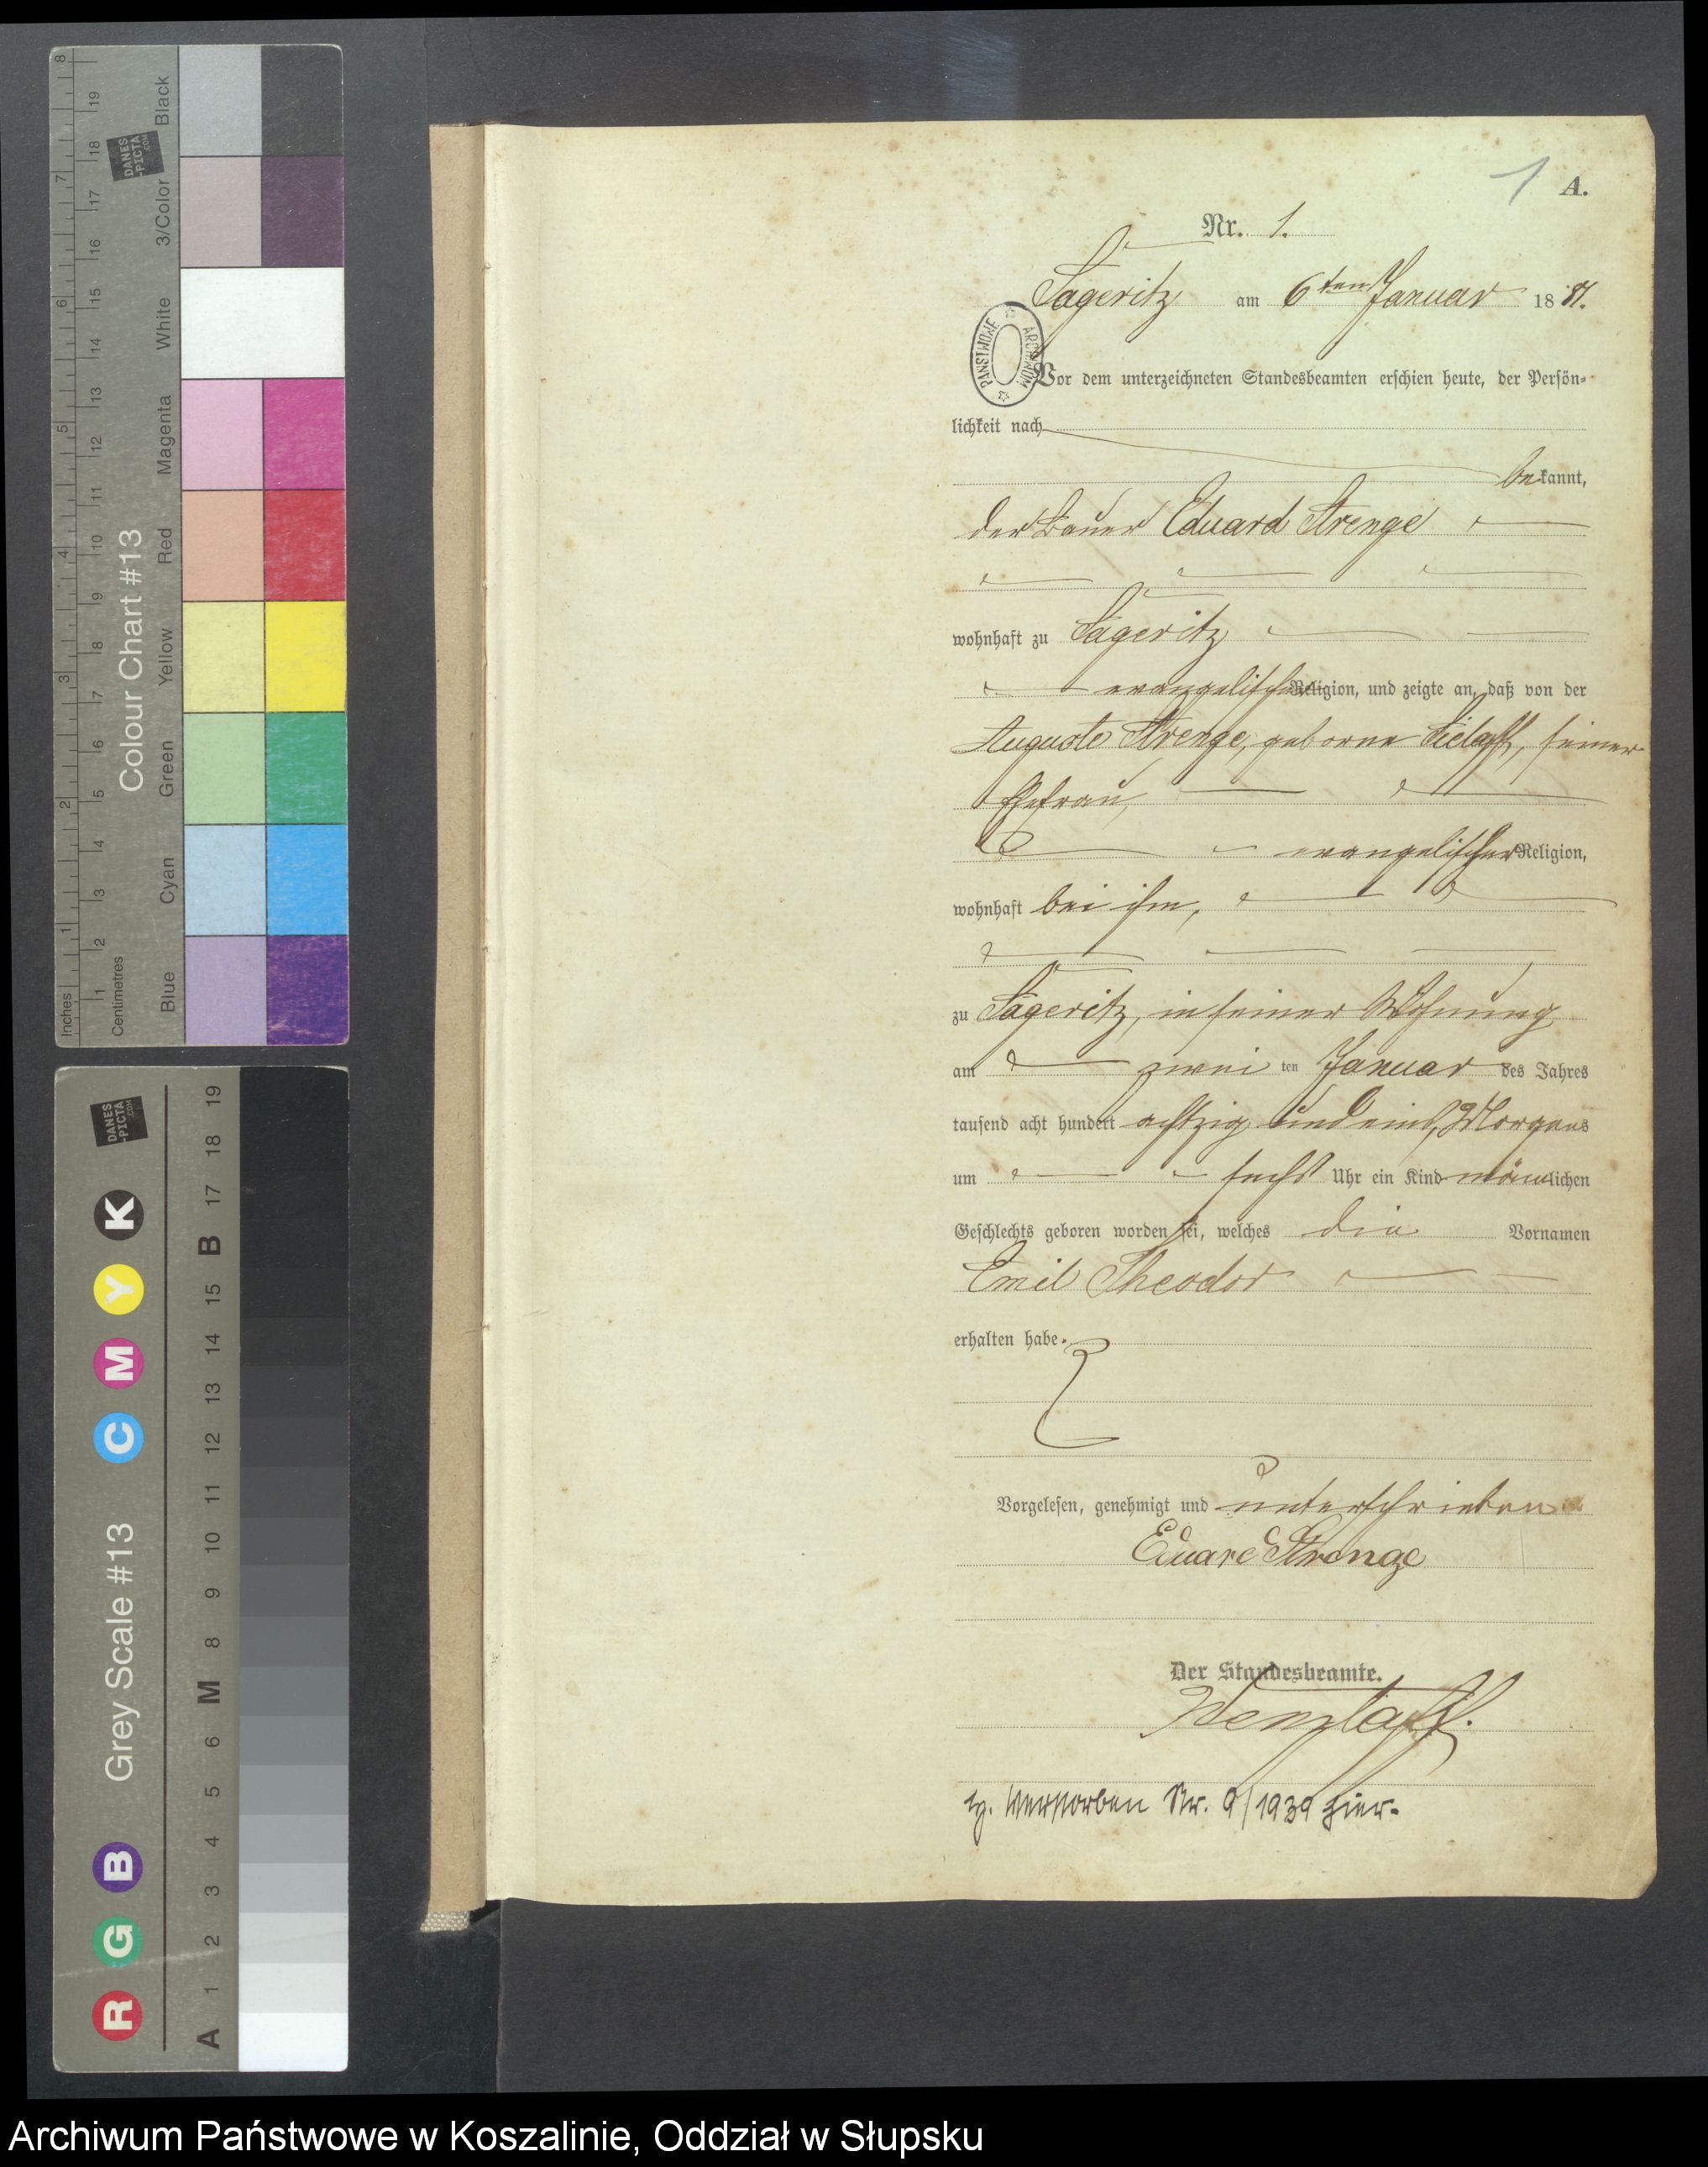 Inches
Centimetres
1 2 3 4 5 6 7 8
1 2 3 4 5 6 7 8 9 10 11 12 13 14 15 16 17 18 19
Colour Chart #13
Blue Cyan Green Yellow Red Magenta White 3/Color Black
DANES
-PICTA
.COM
Grey Scale #13
R G B C M Y K
A 1 2 3 4 5 6 M 8 9 10 11 12 13 14 15 B 17 18 19
DANES
-PICTA
.COM
1 A.
Nr. 1.
Sageritz am 6ten Januar 1881.
PAŃSTWOWE ARCHIWUM
Vor dem unterzeichneten Standesbeamten erschien heute, der Persön-
lichkeit nach
bekannt,
der Bauer Eduard Strenge
wohnhaft zu Sageritz
evangelischer Religion, und zeigte an, daß von der
Auguste Strenge, geborne Sielaff, seiner
Ehefrau,
evangelischer Religion,
wohnhaft bei ihm,
zu Sageritz, in seiner Wohnung
am zweiten Januar des Jahres
tausend acht hundert achtzig und eins, Morgens
um sechs Uhr ein Kind männlichen
Geschlechts geboren worden sei, welches die Vornamen
Emil Theodor
erhalten habe.
Vorgelesen, genehmigt und unterschrieben
Eduard Strenge
Der Standesbeamte.
Wenzlaff.
verstorben Nr. 9/1939 hier.
Archiwum Państwowe w Koszalinie, Oddział w Słupsku